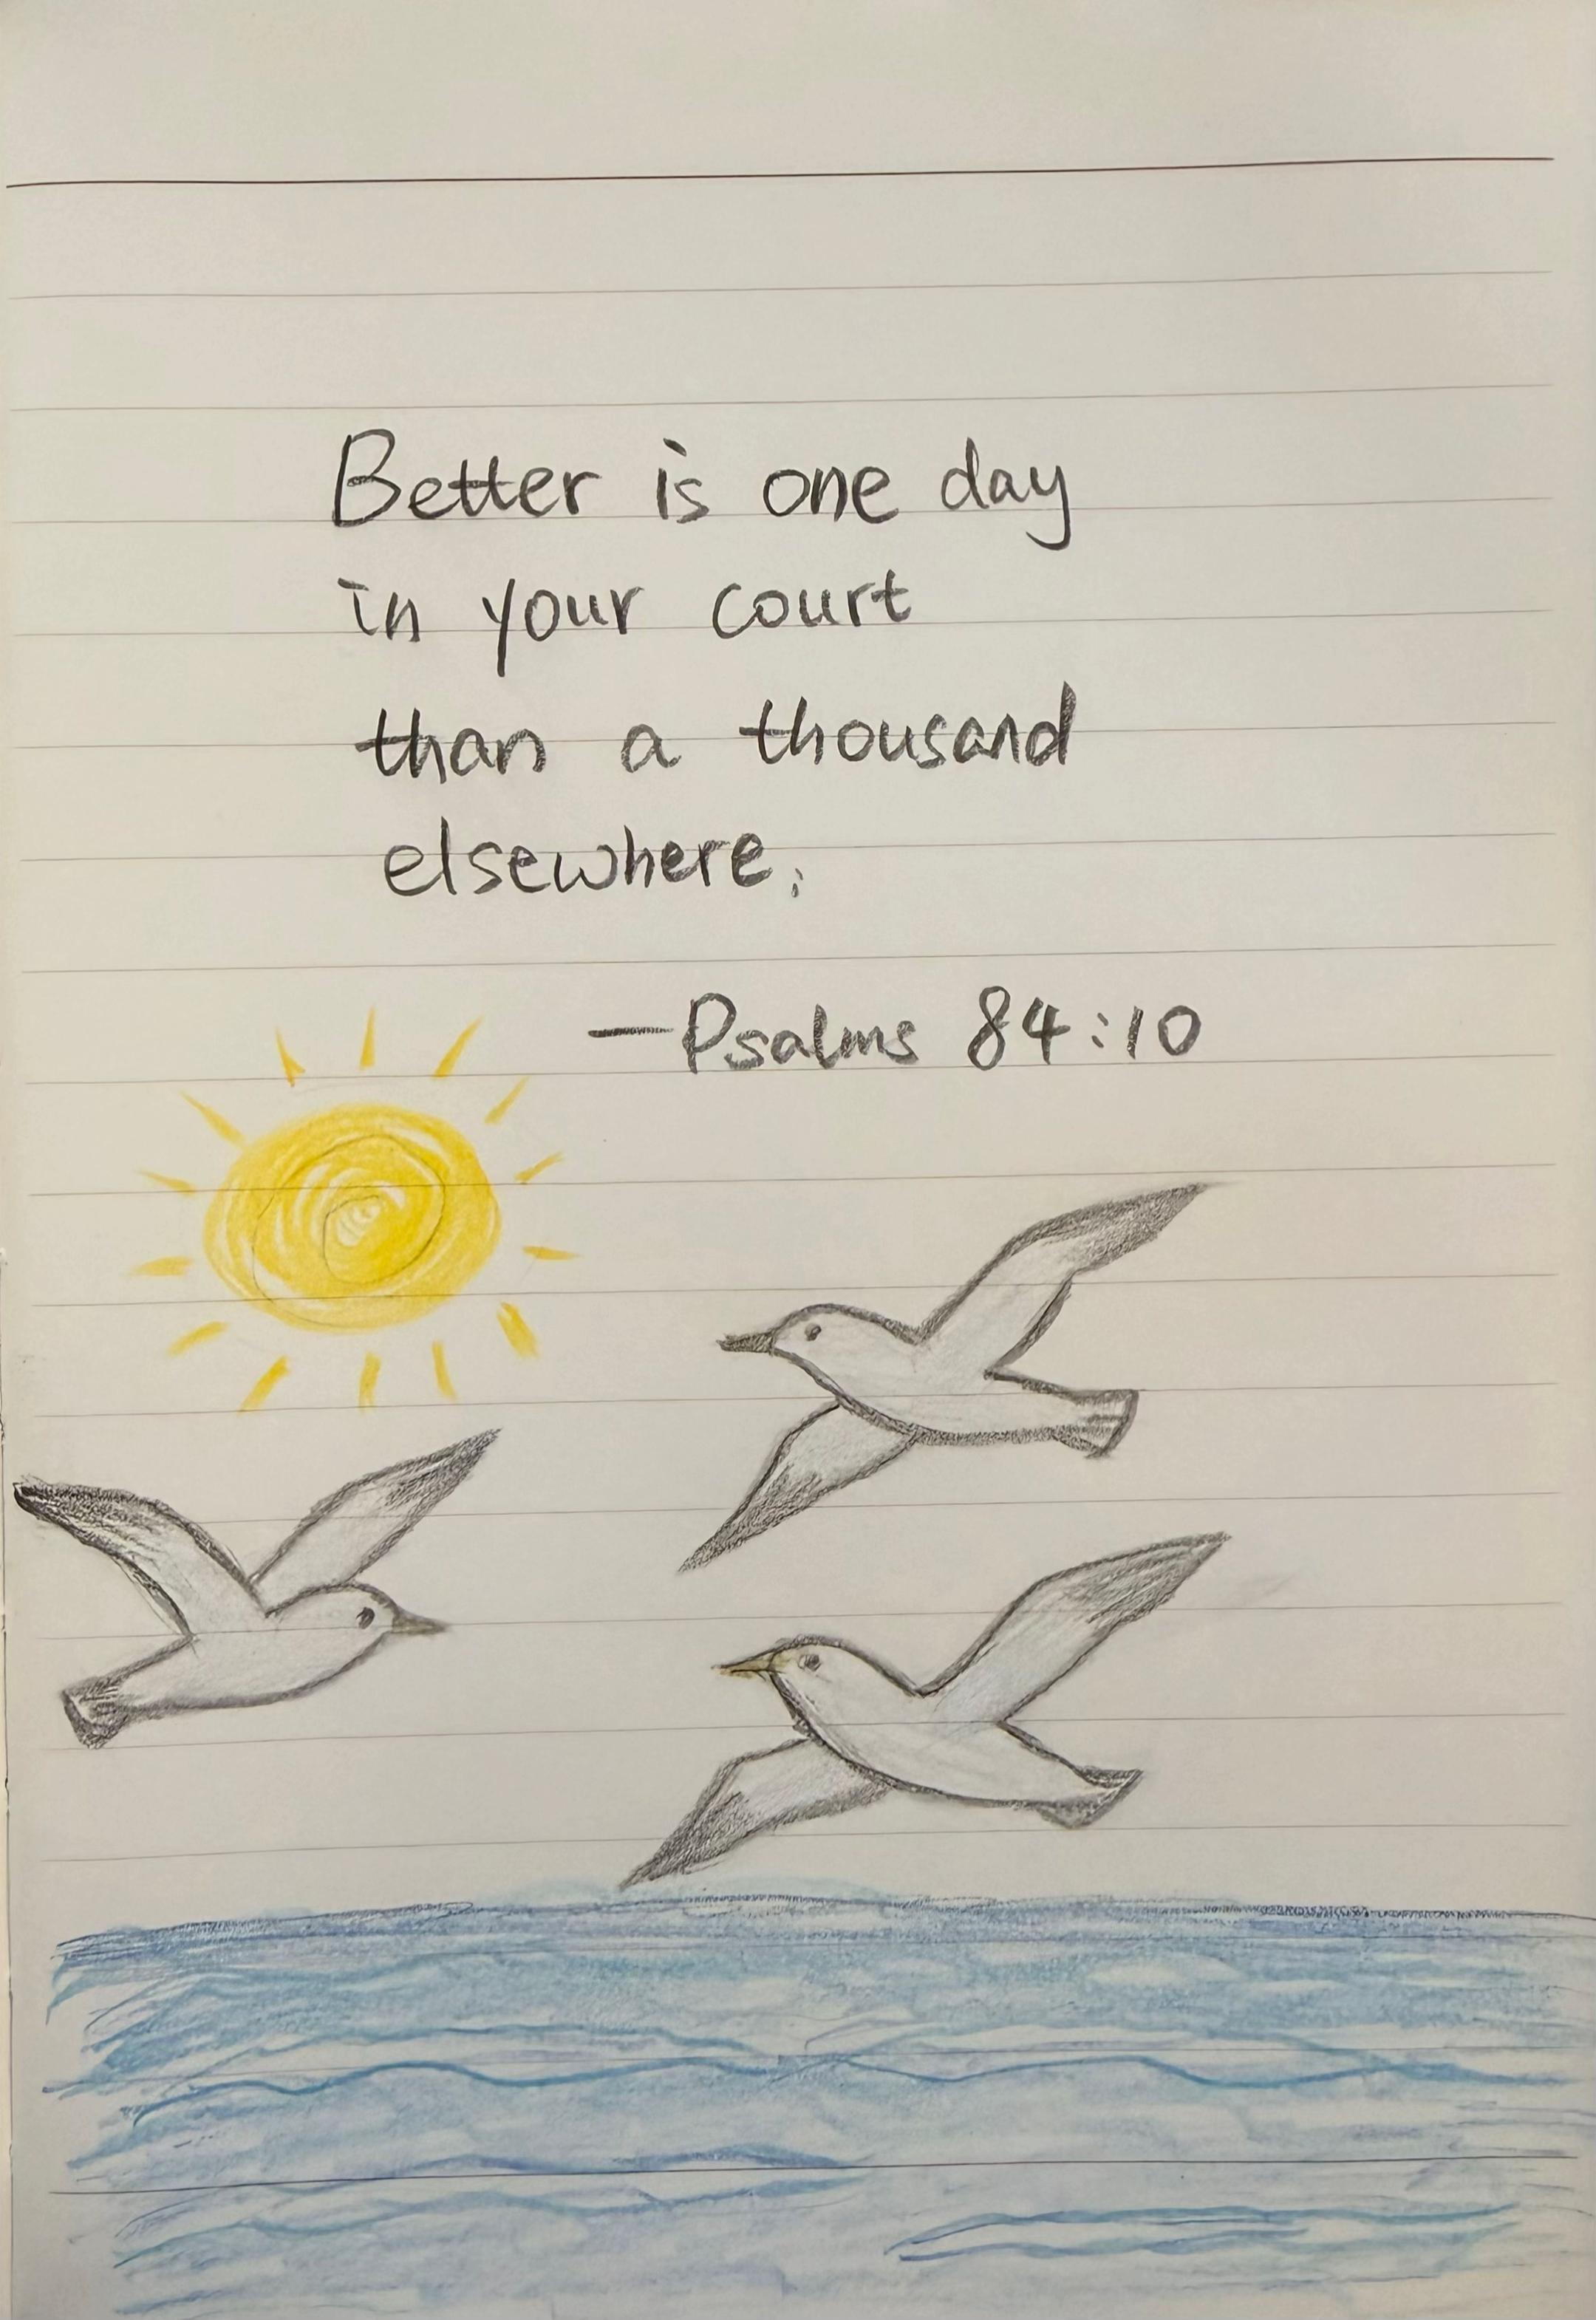 Better is one day
in your court
than a thousand
elsewhere;
—Psalms 84:10